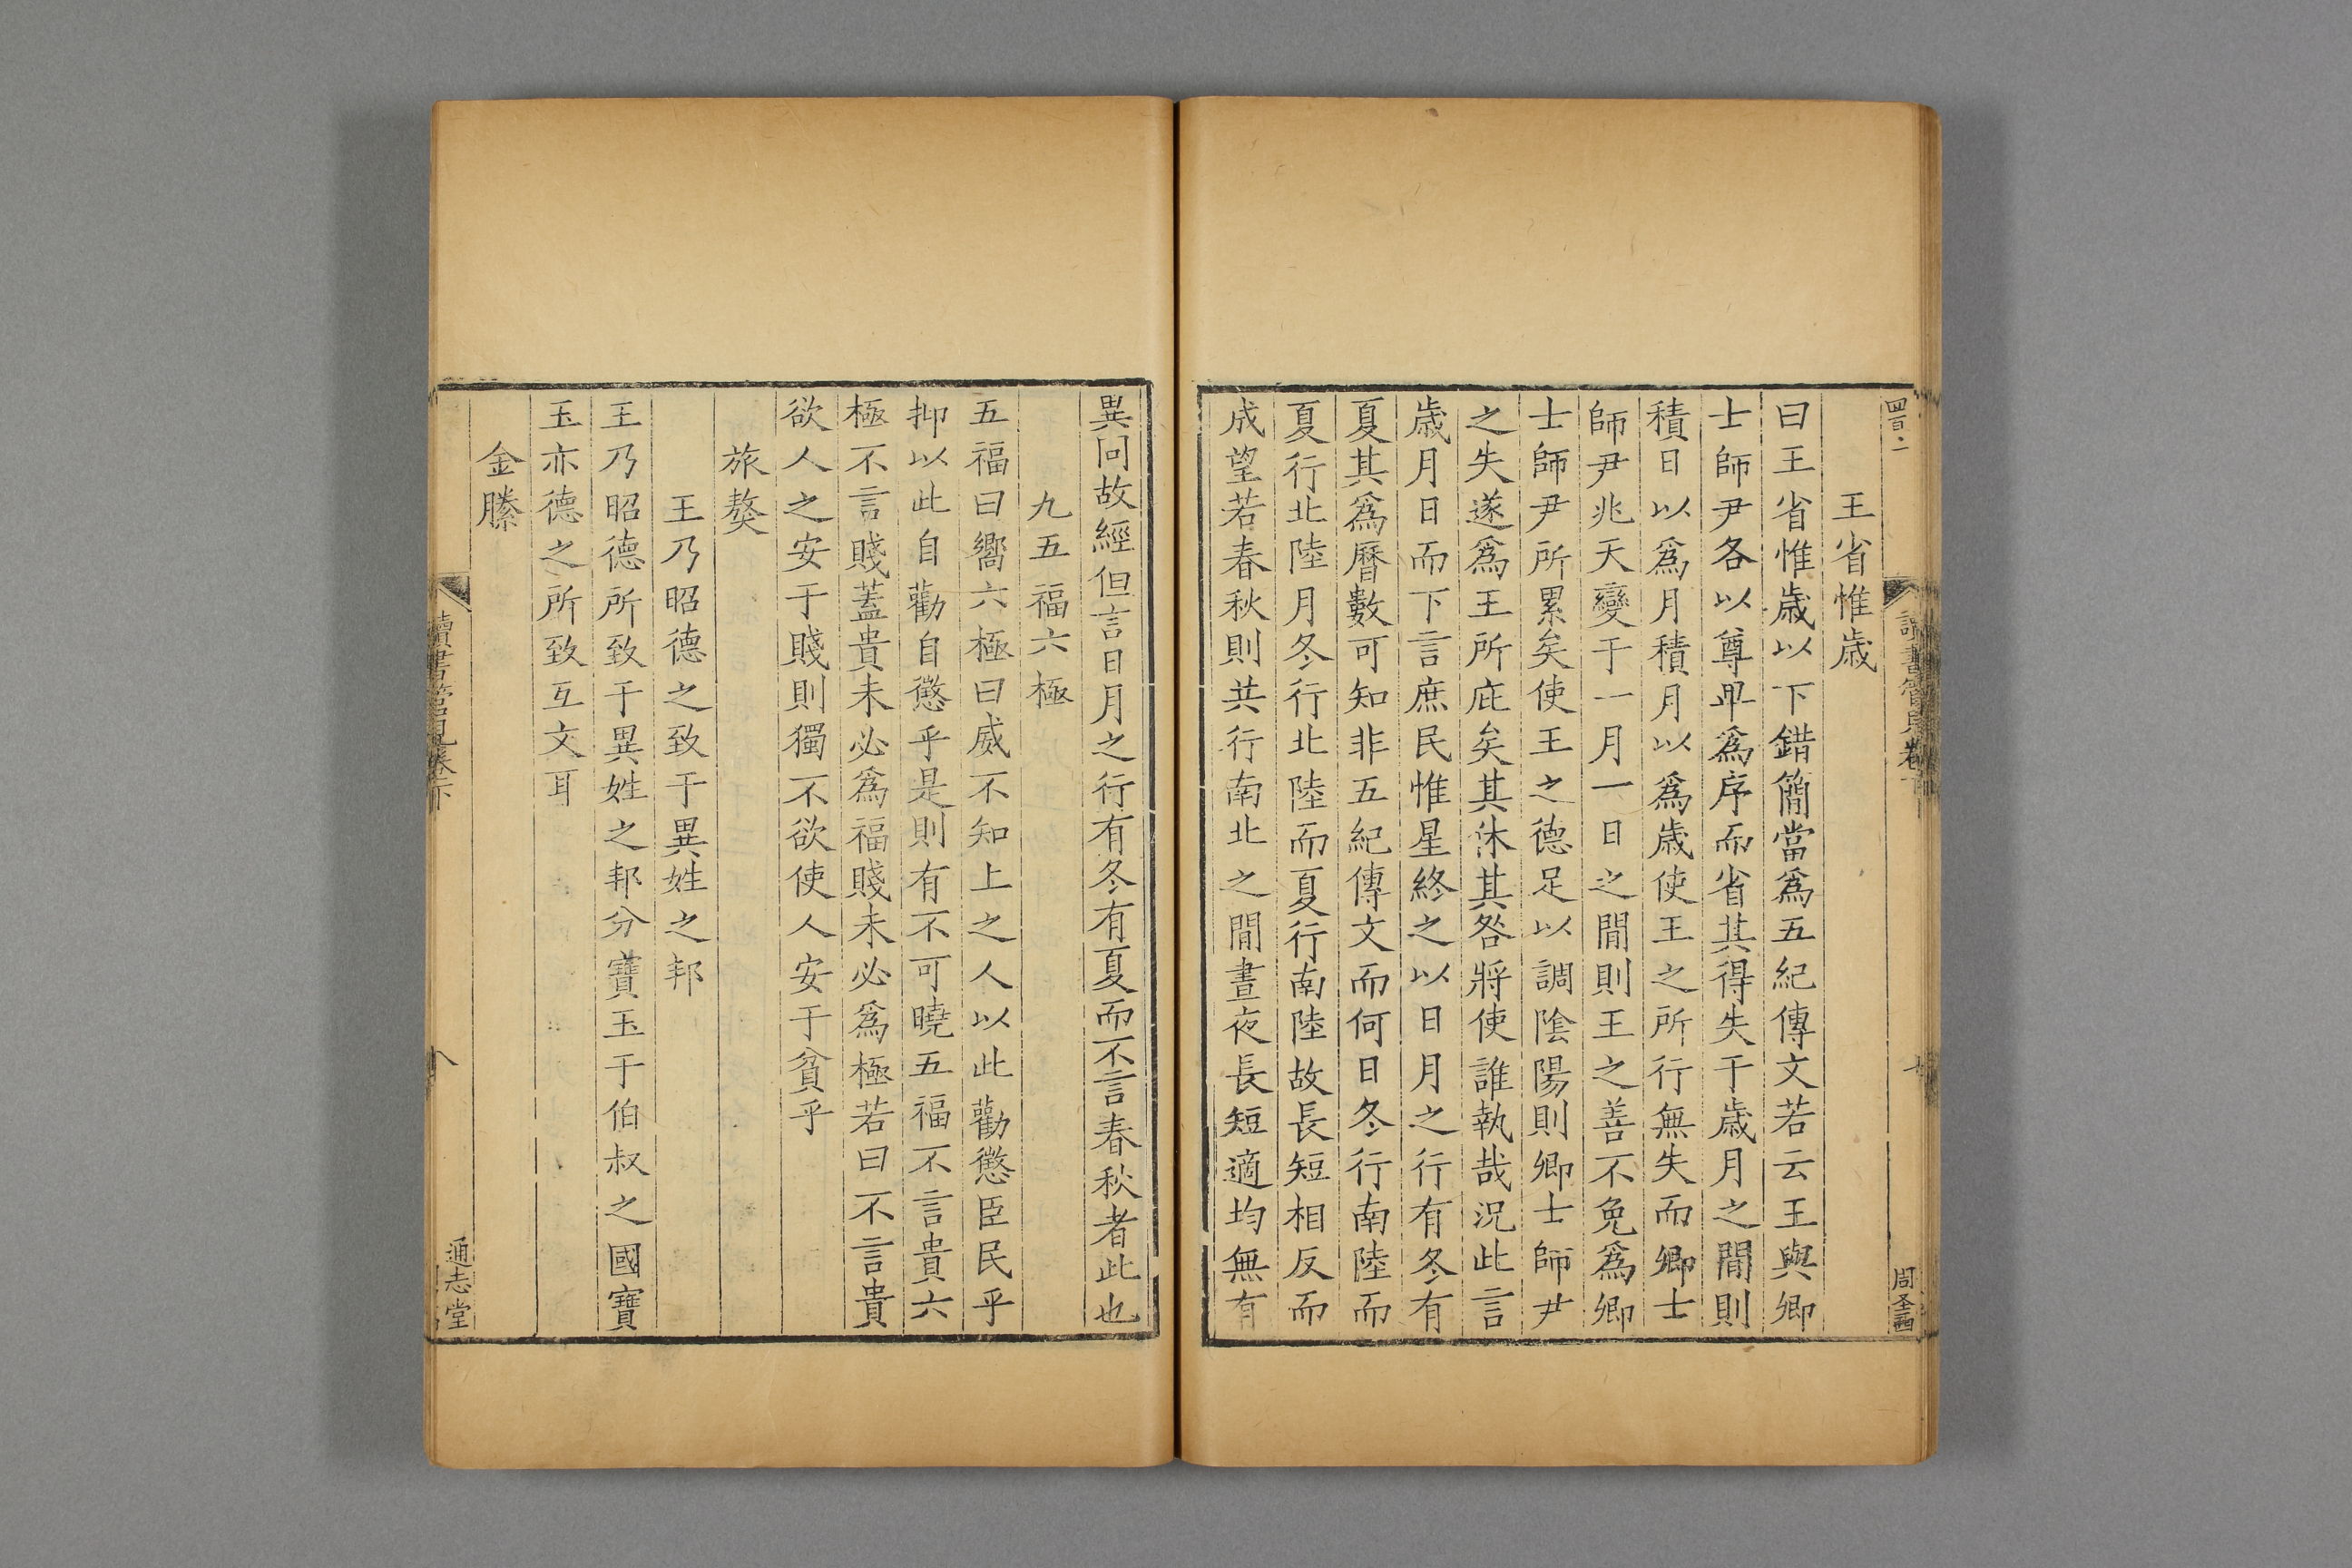 四百二
讀書管見卷下
周圣西
王省惟歳
曰王省惟歳以下錯簡當爲五紀傳文若云王與卿
士師尹各以尊卑爲序而省其得失于歳月之間則
積日以爲月積月以爲歳使王之所行無失而卿士
師尹兆天變于一月一日之間則王之善不免爲卿
士師尹所累矣使王之德足以調陰陽則卿士師尹
之失遂爲王所庇矣其休其咎將使誰執哉況此言
歳月日而下言庶民惟星終之以日月之行有冬有
夏其爲曆數可知非五紀傳文而何日冬行南陸而
夏行北陸月冬行北陸而夏行南陸故長短相反而
成望若春秋則共行南北之間晝夜長短適均無有
異同故經但言日月之行有冬有夏而不言春秋者此也
九五福六極
五福曰嚮六極曰威不知上之人以此勸懲臣民乎
抑以此自勸自懲乎是則有不可曉五福不言貴六
極不言賤蓋貴未必爲福賤未必爲極若曰不言貴
欲人之安于賤則獨不欲使人安于貧乎
旅獒
王乃昭德之致于異姓之邦
王乃昭德所致于異姓之邦分寶玉于伯叔之國寶
玉亦德之所致互文耳
金縢
讀書管見卷下
八
通志堂